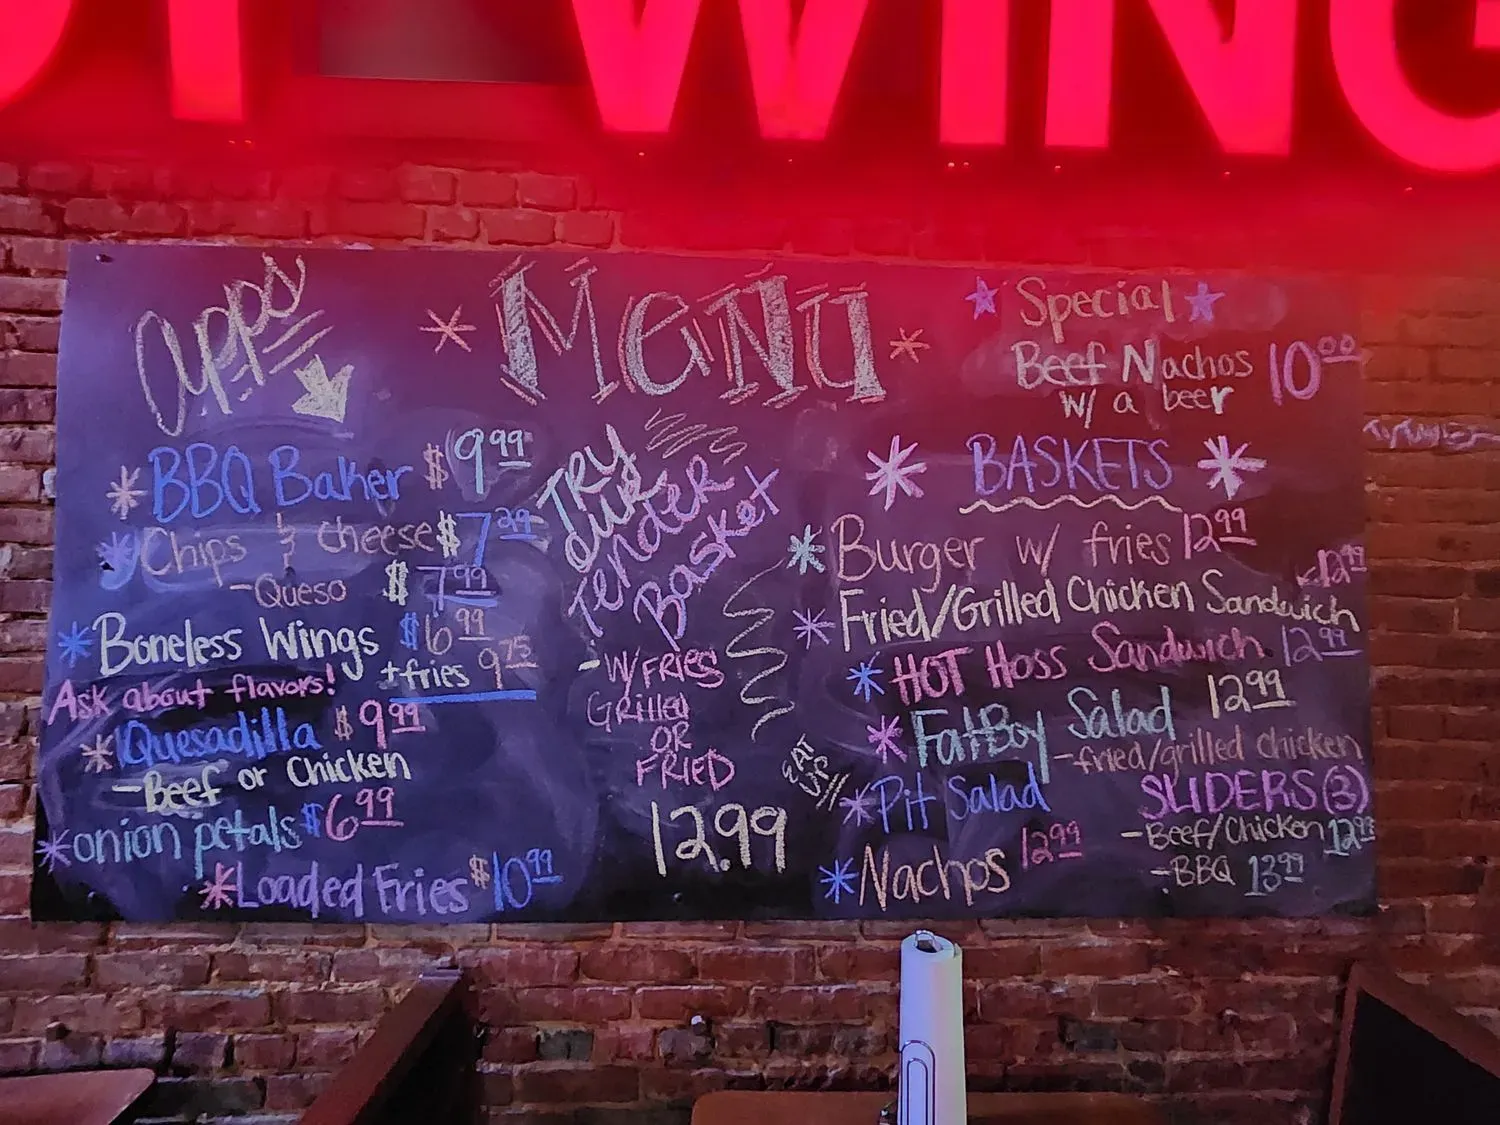 OT WING
apps
BBQ Baker $9.99
Chips & cheese $7.29
-Queso $7.99
Boneless Wings $6.99
+fries 9.75
Ask about flavors!
Quesadilla $9.99
-Beef or Chicken
onion petals $6.99
Loaded Fries $10.99
Menu
TRY
OUR
Tender
Basket
-W/FRIES
Grilled
OR
FRIED
12.99
EAT
UP
Special
Beef Nachos 10.00
w/ a beer
BASKETS
Burger w/ fries 12.99
Fried/Grilled Chicken Sandwich 12.99
HOT Hoss Sandwich 12.99
FatBoy Salad 12.99
-fried/grilled chicken
Pit Salad
Nachos 12.99
SLIDERS (3)
-Beef/Chicken 12.99
-BBQ 13.99